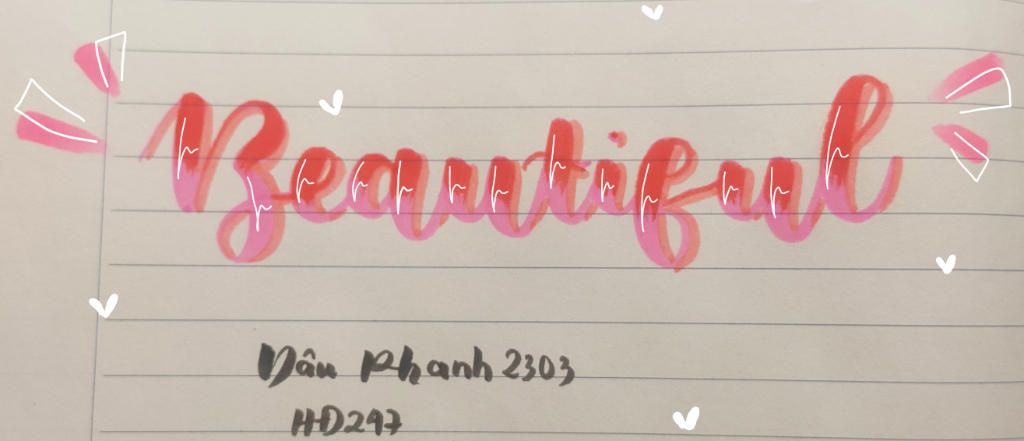 Beautiful
Dâu Phanh 2303
HĐ247